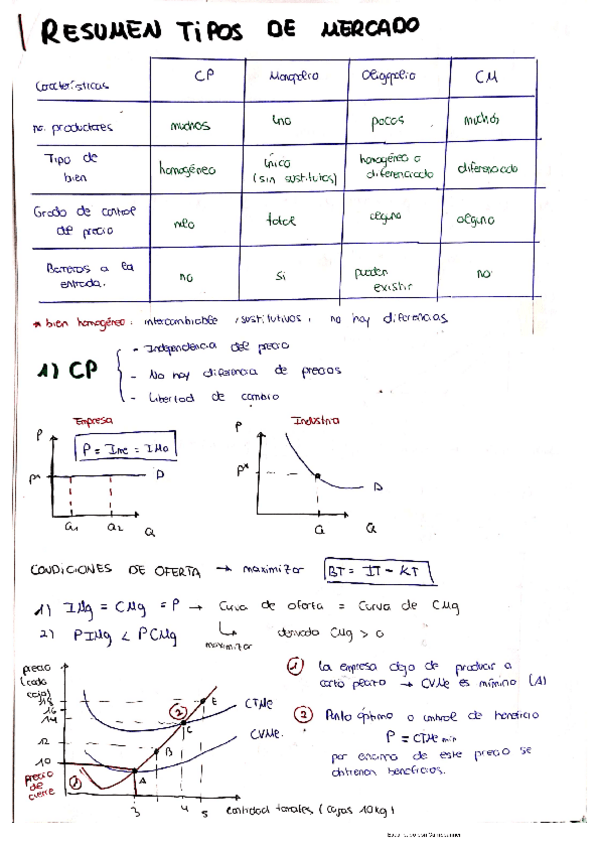 RESUMEN TIPOS DE MERCADO
Características CP Monopolio Oligopolio CM
no. productores muchos uno pocos muchos
Tipo de bien homogéneo único (sin sustitutos) homogéneo o diferenciado diferenciado
Grado de control de precio nulo total alguno alguno
Barreras a la entrada. no si pueden existir no
* bien homogéneo: intercambiable, sustitutivos, no hay diferencias
1) CP
- Independencia del precio
- No hay diferencia de precios
- Libertad de cambio
Empresa
P
P = Ime = IMg
P*
D
Q1 Q2 Q
Industria
P
P*
D
Q Q
CONDICIONES DE OFERTA → maximizar BT = IT - KT
1) IMg = CMg = P → Curva de oferta = Curva de CMg
2) PIMg < PCMg
maximizar
derivada CMg > 0
precio
(cada
caja)
18
16
14
12
10
precio
de
cierre
1
A
B
2
C
E
CTMe
CVMe
3 4 5 cantidad tonales (cajas 10kg)
1 La empresa deja de producir a
corto plazo → CVMe es mínimo (A)
2 Punto óptimo o umbral de beneficio
P = CTMe min
por encima de este precio se
obtienen beneficios.